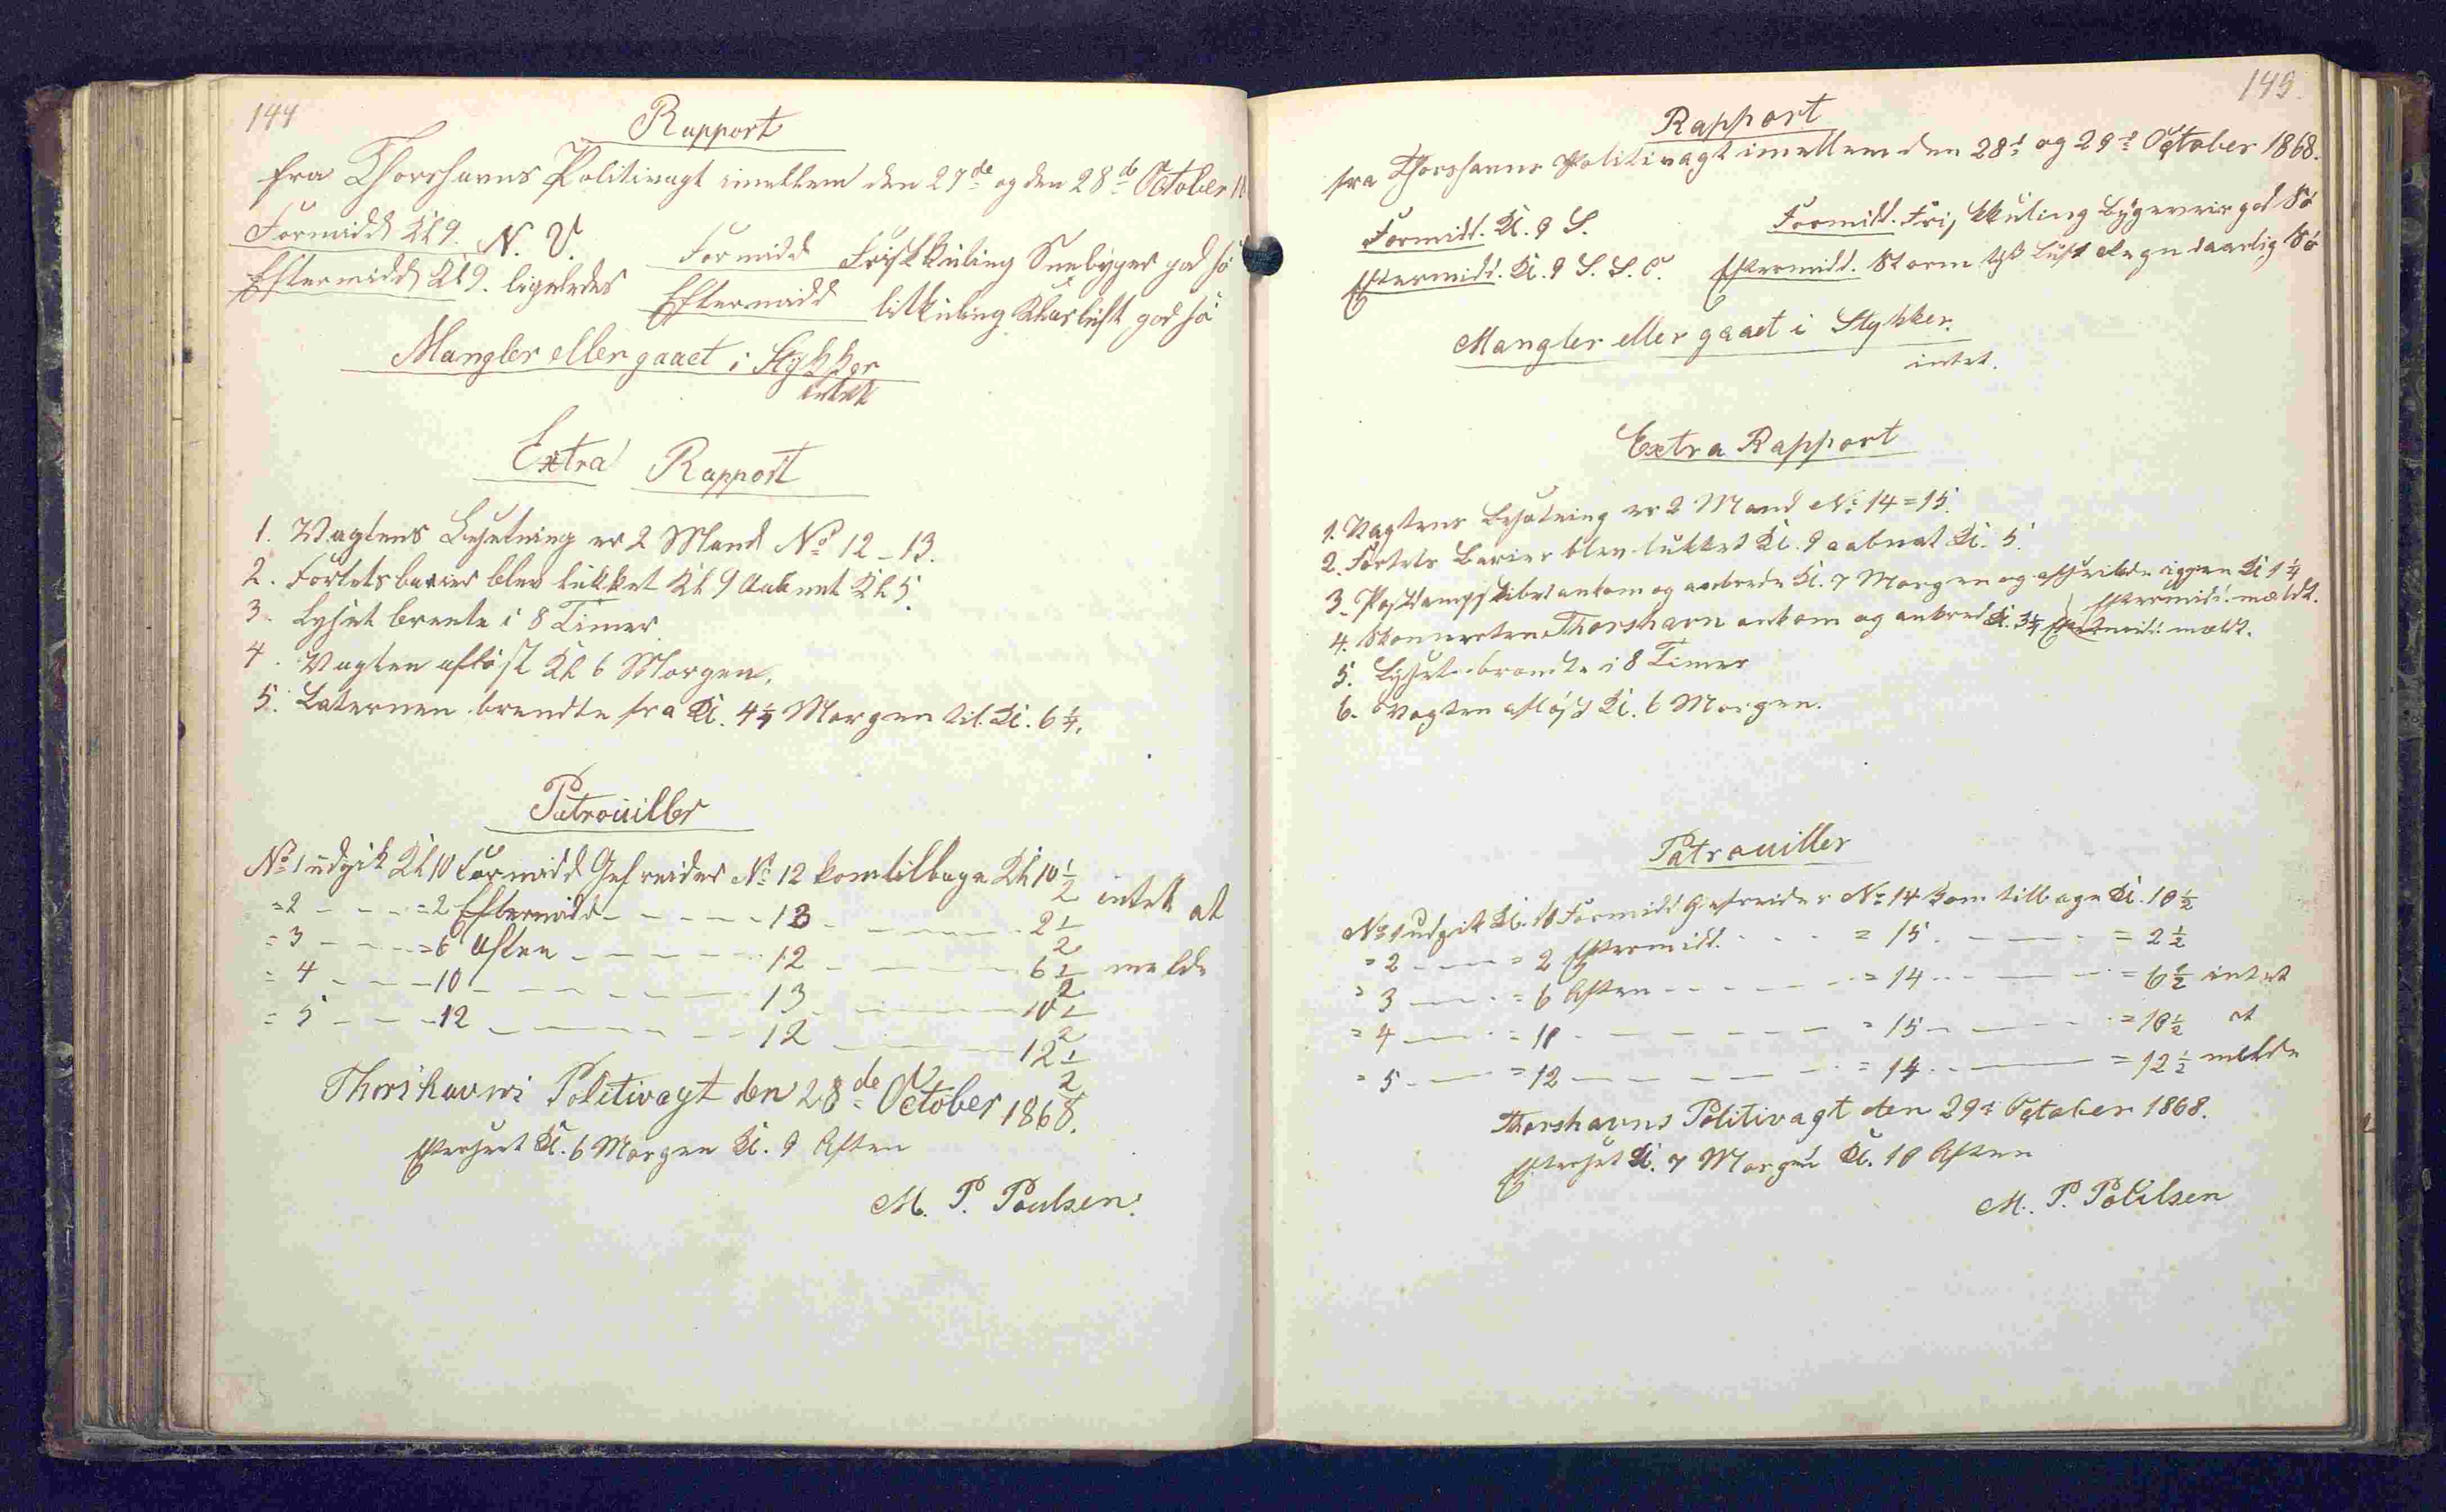 144
Rapport
fra Thorshavns Politivagt imellem den 27de og den 28de October 18
Formidd Kl 9. N. V.
Formidd Frisk Kuling Sneebyger god Sø
Eftermidd Kl 9. ligeledes
Eftermidd lit Kuling Klar luft god Sø
Mangler eller gaaet i Stykker
intet
Extra Rapport
1. Vagtens Besetning er 2 Mand No 12 - 13.
2. Fortets barier blev lukket Kl 9 Aabnet Kl 5.
3. Lyset brente i 8 Timer
4. Vagten afløst Kl 6 Morgen.
5. Laternen brendte fra Kl. 4 1/4 Morgen til Kl. 6 1/4.
Patrouiller
No 1 udgik Kl 10 Formidd Gefreider No 12 kom tilbage Kl 10 1/2 intet at
= 2 - - - = 2 Eftermidd - - - - - 13 - - - - - 2 1/2
= 3 - - - = 6 Aften - - - - - 12 - - - - - 6 1/2 melde
= 4 - - - 10 - - - - - 13 - - - - - 10 1/2
= 5 - - - 12 - - - - - 12 - - - - - 12 1/2
Thorshavns Politivagt den 28de October 1868.
Efterset Kl. 6 Morgen Kl. 9 Aften
M. P. Poulsen.
145.
Rapport
fra Thorshavns Politivagt imellem den 28d og 29d October 1868.
Formidd. Kl. 9 S.
Formidd. Frisk Kuling Bygeveir god Sø
Eftermidd. Kl. 9 S. S. O.
Eftermidd. Storm tyk Luft Regn daarlig Sø
Mangler eller gaaet i Stykker.
intet.
Extra Rapport
1. Vagtens Besætning er 2 Mand No 14 = 15.
2. Fortets Barier blev lukket Kl. 9 aabnat Kl. 5.
3. Postdampskibet ankom og ankrede Kl. 7 Morgen og afseilede igjen Kl 1 1/4
Eftermidd. mældt.
4. Skonnerten Thorshavn ankom og ankred Kl. 3 1/4 Eftermidd. mældt.
5. Lyset brændte i 8 Timer
6. Vagten afløst Kl. 6 Morgen.
Patrouiller
No 1 udgik Kl. 10 Formidd Gefreider No 14 kom tilbage Kl. 10 1/2
= 2 - - - = 2 Eftermidd. - - - = 15 - - - = 2 1/2
= 3 - - - = 6 Aften - - - - - = 14 - - - = 6 1/2 intet
= 4 - - - = 10 - - - - - = 15 - - - = 10 1/2 at
= 5 - - - = 12 - - - - - = 14 - - - = 12 1/2 melde
Thorshavns Politivagt den 29d October 1868.
Efterset Kl. 7 Morgen Kl. 10 Aften
M. P. Poulsen